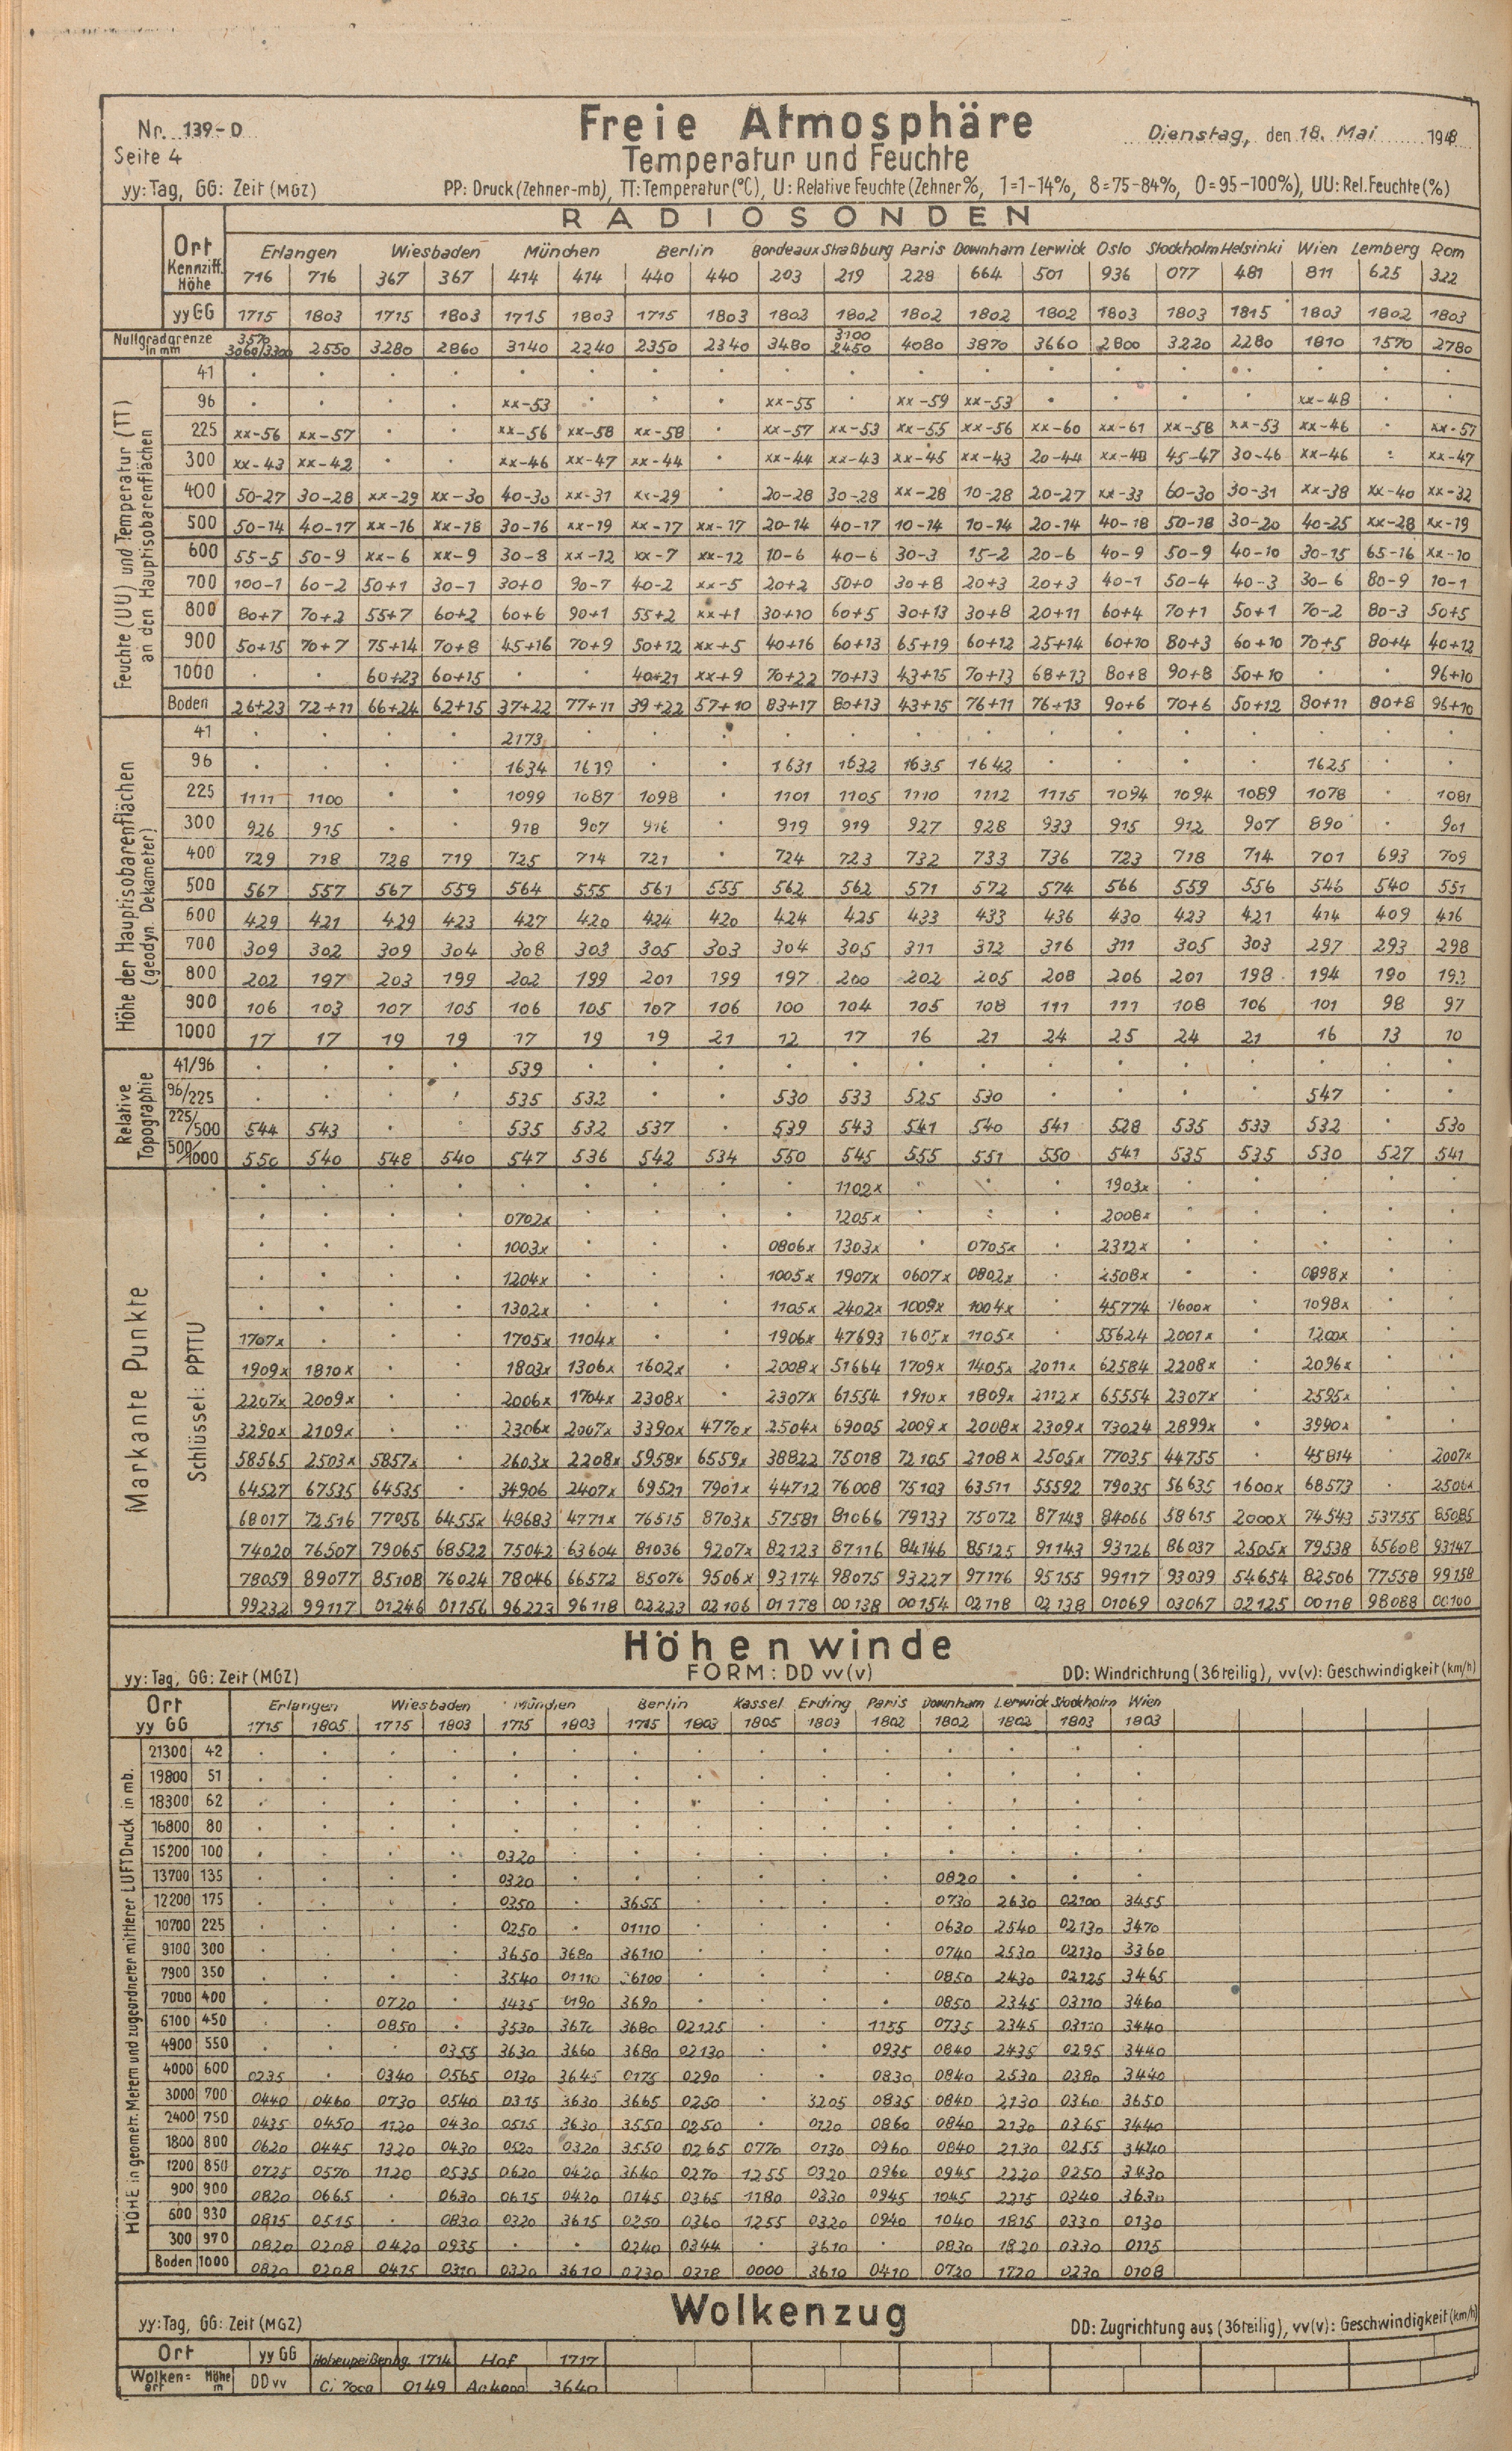 Nr. 139-D
Freie Atmosphäre
Dienstag, den 18. Mai 1948
Seite 4
Temperatur und Feuchte
yy: Tag, GG: Zeit (MGZ) PP: Druck (Zehner-mb), TT: Temperatur (°C), U: Relative Feuchte (Zehner %, 1=1-14%, 8=75-84%, 0=95-100%), UU: Rel. Feuchte (%)
RADIOSONDEN
Ort Erlangen Wiesbaden München Berlin Bordeaux Straßburg Paris Downham Lerwick Oslo Stockholm Helsinki Wien Lemberg Rom
Kennziff. Höhe 716 716 367 367 414 414 440 440 203 219 228 664 501 936 077 481 811 625 322
yy GG 1715 1803 1715 1803 1715 1803 1715 1803 1803 1802 1802 1802 1802 1803 1803 1815 1803 1802 1803
Nullgradgrenze in mm 3570 3060/3300 2550 3280 2860 3140 2240 2350 2340 3480 3100 2450 4080 3870 3660 2800 3220 2280 1810 1570 2780
Feuchte (UU) und Temperatur (TT) an den Hauptisobarenflächen
41 . . . . . . . . . . . . . . . . . . .
96 . . . . xx-53 . . . xx-55 . xx-59 xx-53 . . . . xx-48 . .
225 xx-56 xx-57 . . xx-56 xx-58 xx-58 . xx-57 xx-53 xx-55 xx-56 xx-60 xx-61 xx-58 xx-53 xx-46 . xx-57
300 xx-43 xx-42 . . xx-46 xx-47 xx-44 . xx-44 xx-43 xx-45 xx-43 20-44 xx-48 45-47 30-46 xx-46 : xx-47
400 50-27 30-28 xx-29 xx-30 40-30 xx-31 xx-29 . 20-28 30-28 xx-28 10-28 20-27 xx-33 60-30 30-31 xx-38 xx-40 xx-32
500 50-14 40-17 xx-16 xx-18 30-16 xx-19 xx-17 xx-17 20-14 40-17 10-14 10-14 20-14 40-18 50-18 30-20 40-25 xx-28 xx-19
600 55-5 50-9 xx-6 xx-9 30-8 xx-12 xx-7 xx-12 10-6 40-6 30-3 15-2 20-6 40-9 50-9 40-10 30-15 65-16 xx-10
700 100-1 60-2 50+1 30-1 30+0 90-7 40-2 xx-5 20+2 50+0 30+8 20+3 20+3 40-1 50-4 40-3 30-6 80-9 10-1
800 80+7 70+2 55+7 60+2 60+6 90+1 55+2 xx+1 30+10 60+5 30+13 30+8 20+11 60+4 70+1 50+1 70-2 80-3 50+5
900 50+15 70+7 75+14 70+8 45+16 70+9 50+12 xx+5 40+16 60+13 65+19 60+12 25+14 60+10 80+3 60+10 70+5 80+4 40+12
1000 . . 60+23 60+15 . . 40+21 xx+9 70+22 70+13 43+15 70+13 68+13 80+8 90+8 50+10 . . 96+10
Boden 26+23 72+11 66+24 62+15 37+22 77+11 39+22 57+10 83+17 80+13 43+15 76+11 76+13 90+6 70+6 50+12 80+11 80+8 96+10
Höhe der Hauptisobarenflächen (geodyn. Dekameter)
41 . . . . 2173 . . . . . . . . . . . . . .
96 . . . . 1634 1619 . . 1631 1632 1635 1642 . . . . 1625 . .
225 1111 1100 . . 1099 1087 1098 . 1101 1105 1110 1112 1115 1094 1094 1089 1078 . 1081
300 926 915 . . 918 907 916 . 919 919 927 928 933 915 912 907 890 . 901
400 729 718 728 719 725 714 721 . 724 723 732 733 736 723 718 714 701 693 709
500 567 557 567 559 564 555 561 555 562 562 571 572 574 566 559 556 546 540 551
600 429 421 429 423 427 420 424 420 424 425 433 433 436 430 423 421 414 409 416
700 309 302 309 304 308 303 305 303 304 305 311 312 316 311 305 303 297 293 298
800 202 197 203 199 202 199 201 199 197 200 202 205 208 206 201 198 194 190 192
900 106 103 107 105 106 105 107 106 100 104 105 108 111 111 108 106 101 98 97
1000 17 17 19 19 17 19 19 21 12 17 16 21 24 25 24 21 16 13 10
Relative Topographie
41/96 . . . . 539 . . . . . . . . . . . . . .
96/225 . . . . 535 532 . . 530 533 525 530 . . . . 547 . .
225/500 544 543 . . 535 532 537 . 539 543 541 540 541 528 535 533 532 . 530
500/1000 550 540 548 540 547 536 542 534 550 545 555 551 550 541 535 535 530 527 541
Markante Punkte
Schlüssel: PPTTU
. . . . . . . . . 1102x . . . 1903x . . . . .
. . . . 0702x . . . . 1205x . : . 2008x . . . . .
. . . . 1003x . . . 0806x 1303x . 0705x . 2312x . . . . .
. . . . 1204x . . . 1005x 1907x 0607x 0802x . 2508x . . 0898x . .
. . . . 1302x . . . 1105x 2402x 1009x 1004x . 45774 1600x . 1098x . .
1707x . . . 1705x 1104x . . 1906x 47693 1605x 1105x . 55624 2001x . 1200x . .
1909x 1810x . . 1803x 1306x 1602x . 2008x 51664 1709x 1405x 2011x 62584 2208x . 2096x . .
2207x 2009x . . 2006x 1704x 2308x . 2307x 61554 1910x 1809x 2112x 65554 2307x . 2595x . .
3290x 2109x . . 2306x 2007x 3390x 4770x 2504x 69005 2009x 2008x 2309x 73024 2899x . 3990x . .
58565 2503x 5857x . 2603x 2208x 5958x 6559x 38822 75018 72105 2108x 2505x 77035 44755 . 45814 . 2007x
64527 67535 64535 . 34906 2407x 69521 7901x 44712 76008 75103 63511 55592 79035 56635 1600x 68573 . 2506x
68017 72516 77056 6455x 48683 4771x 76515 8703x 57581 81066 79133 75072 87143 84066 58615 2000x 74543 53755 85085
74020 76507 79065 68522 75042 63604 81036 9207x 82123 87116 84146 85125 91143 93126 86037 2505x 79538 65608 93147
78059 89077 85108 76024 78046 66572 85076 9506x 93174 98075 93227 97116 95155 99117 93039 54654 82506 77558 99158
99232 99117 01246 01156 96223 96118 02223 02106 01178 00138 00154 02118 02138 01069 03067 02125 00118 98088 00100
Höhenwinde
yy: Tag, GG: Zeit (MGZ) FORM: DD vv(v) DD: Windrichtung (36teilig), vv(v): Geschwindigkeit (km/h)
Ort Erlangen Wiesbaden München Berlin Kassel Erding Paris Downham Lerwick Stockholm Wien
yy GG 1715 1805 1715 1803 1715 1803 1715 1803 1805 1803 1802 1802 1802 1803 1803
HÖHE in geometr. Metern und zugeordneter mittlerer LUFTDruck in mb.
21300 42 . . . . . . . . . . . . . . .
19800 51 . . . . . . . . . . . . . . .
18300 62 . . . . . . . . . . . . . . .
16800 80 . . . . . . . . . . . . . . .
15200 100 . . . . 0320 . . . . . . . . . .
13700 135 . . . . 0320 . . . . . . 0820 . . .
12200 175 . . . . 0350 . 3655 . . . . 0730 2630 02100 3455
10700 225 . . . . 0250 . 01110 . . . . 0630 2540 02130 3470
9100 300 . . . . 3650 3680 36110 . . . . 0740 2530 02130 3360
7900 350 . . . . 3540 01110 36100 . . . . 0850 2430 02125 3465
7000 400 . . 0720 . 3435 0190 3690 . . . . 0850 2345 03110 3460
6100 450 . . 0850 . 3530 3670 3680 02125 . . 1155 0735 2345 03110 3440
4900 550 . . . 0355 3630 3660 3680 02130 . . 0935 0840 2435 0295 3440
4000 600 0235 . 0340 0565 0130 3645 0175 0290 . . 0830 0840 2530 0380 3440
3000 700 0440 0460 0730 0540 0315 3630 3665 0250 . 3205 0835 0840 2130 0360 3650
2400 750 0435 0450 1120 0430 0515 3630 3550 0250 . 0120 0860 0840 2130 0365 3440
1800 800 0620 0445 1320 0430 0520 0320 3550 0265 0770 0130 0960 0840 2130 0255 3440
1200 850 0725 0570 1120 0535 0620 0420 3640 0270 1255 0320 0960 0945 2220 0250 3430
900 900 0820 0665 . 0630 0615 0420 0145 0365 1180 0330 0945 1045 2215 0340 3630
600 930 0815 0515 . 0830 0320 3615 0250 0360 1255 0320 0940 1040 1815 0330 0130
300 970 0820 0208 0420 0935 . . 0240 0344 . 3610 . 0830 1820 0330 0115
Boden 1000 0820 0208 0415 0310 0320 3610 0230 0318 0000 3610 0410 0720 1720 0230 0108
Wolkenzug
yy: Tag, GG: Zeit (MGZ) DD: Zugrichtung aus (36teilig), vv(v): Geschwindigkeit (km/h)
Ort yy GG Hohenpeißenbg. 1714 Hof 1717
Wolken=art Höhe m DD vv Ci 7000 0149 Ac 4000 3640